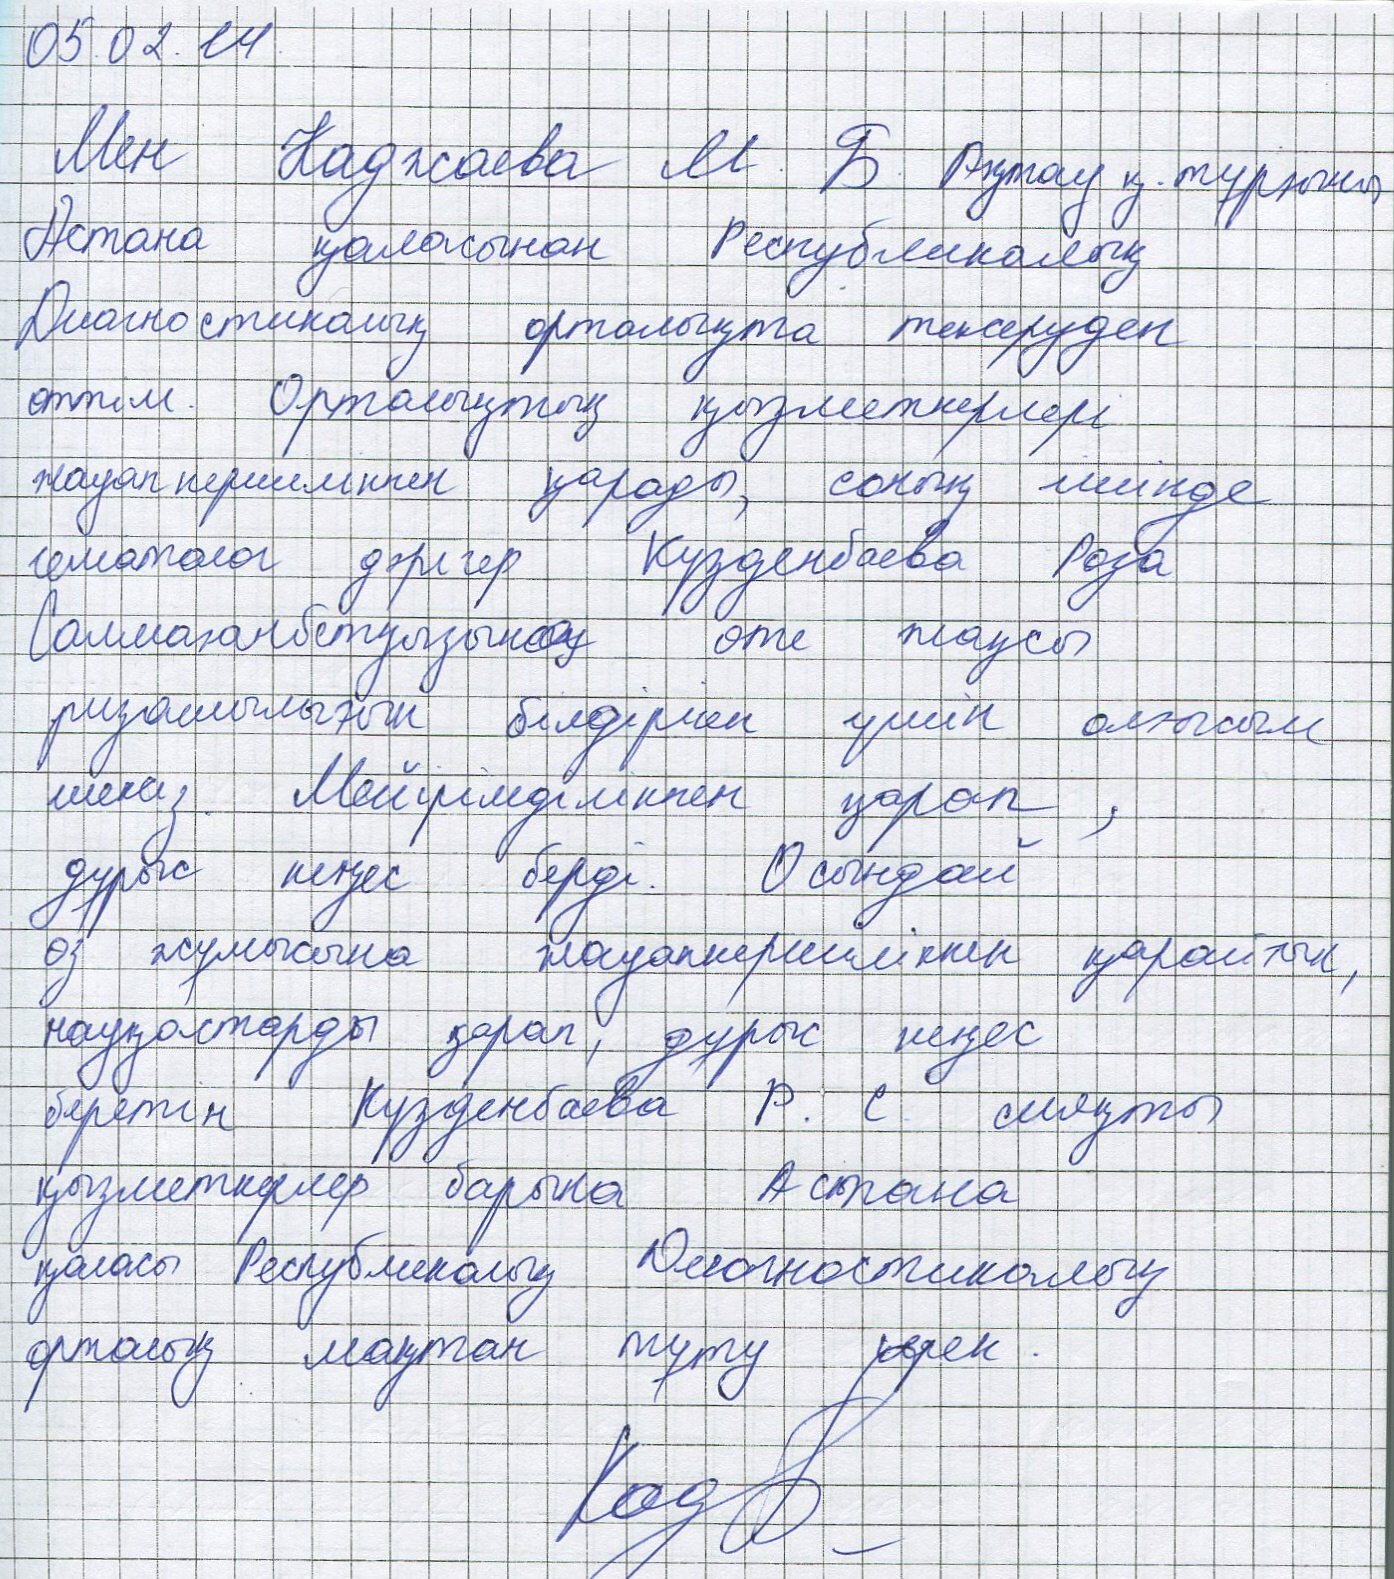 05.02.14
Мен Каджаева М. Б. Ақтау қ. тұрғыны
Астана қаласынан Республикалық
Диагностикалық орталықта тексеруден
өттім. Орталықтың қызметкерлері
жауапкершілікпен қарады, соның ішінде
гематолог дәрігер Кузденбаева Роза
Салмаханбетқызына өте жақсы
ризашылығын білдіргген үшін алғысым
шексіз. Мейірімділікпен қарап,
дұрыс кеңес берді. Осындай
өз жұмысына жауапкершілікпен қарайтын,
науқастарды қарап, дұрыс кеңес
беретін Кузденбаева Р. С. сияқты
қызметкерлер барына Астана
қаласы Республикалық Диагностикалық
орталық мақтан тұту керек.
Кад